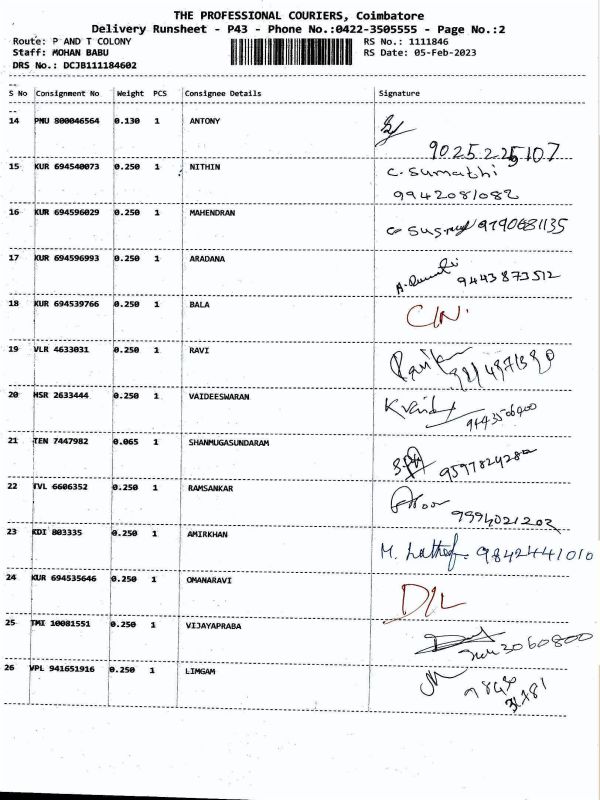 THE PROFESSIONAL COURIERS, Coimbatore
Delivery Runsheet - P43 - Phone No.:0422-3505555 - Page No.:2
Route: P AND T COLONY RS No.: 1111846
Staff: MOHAN BABU RS Date: 05-Feb-2023
DRS No.: DCJB111184602
S No Consignment No Weight PCS Consignee Details Signature
14 PNU 800046564 0.130 1 ANTONY
9025225107
15 KUR 694540073 0.250 1 NITHIN C. Sumathi
9942081082
16 KUR 694596029 0.250 1 MAHENDRAN
9790681135
17 KUR 694596993 0.250 1 ARADANA
9443873512
18 KUR 694539766 0.250 1 BALA C/N.
19 VLR 4633031 0.250 1 RAVI
20 HSR 2633444 0.250 1 VAIDEESWARAN
21 TEN 7447982 0.065 1 SHANMUGASUNDARAM
22 TVL 6606352 0.250 1 RAMSANKAR
9994021202
23 KDI 803335 0.250 1 AMIRKHAN M. Lathef. 9842441010
24 KUR 694535646 0.250 1 OMANARAVI D/L
25 TMI 10081551 0.250 1 VIJAYAPRABA
26 VPL 941651916 0.250 1 LIMGAM